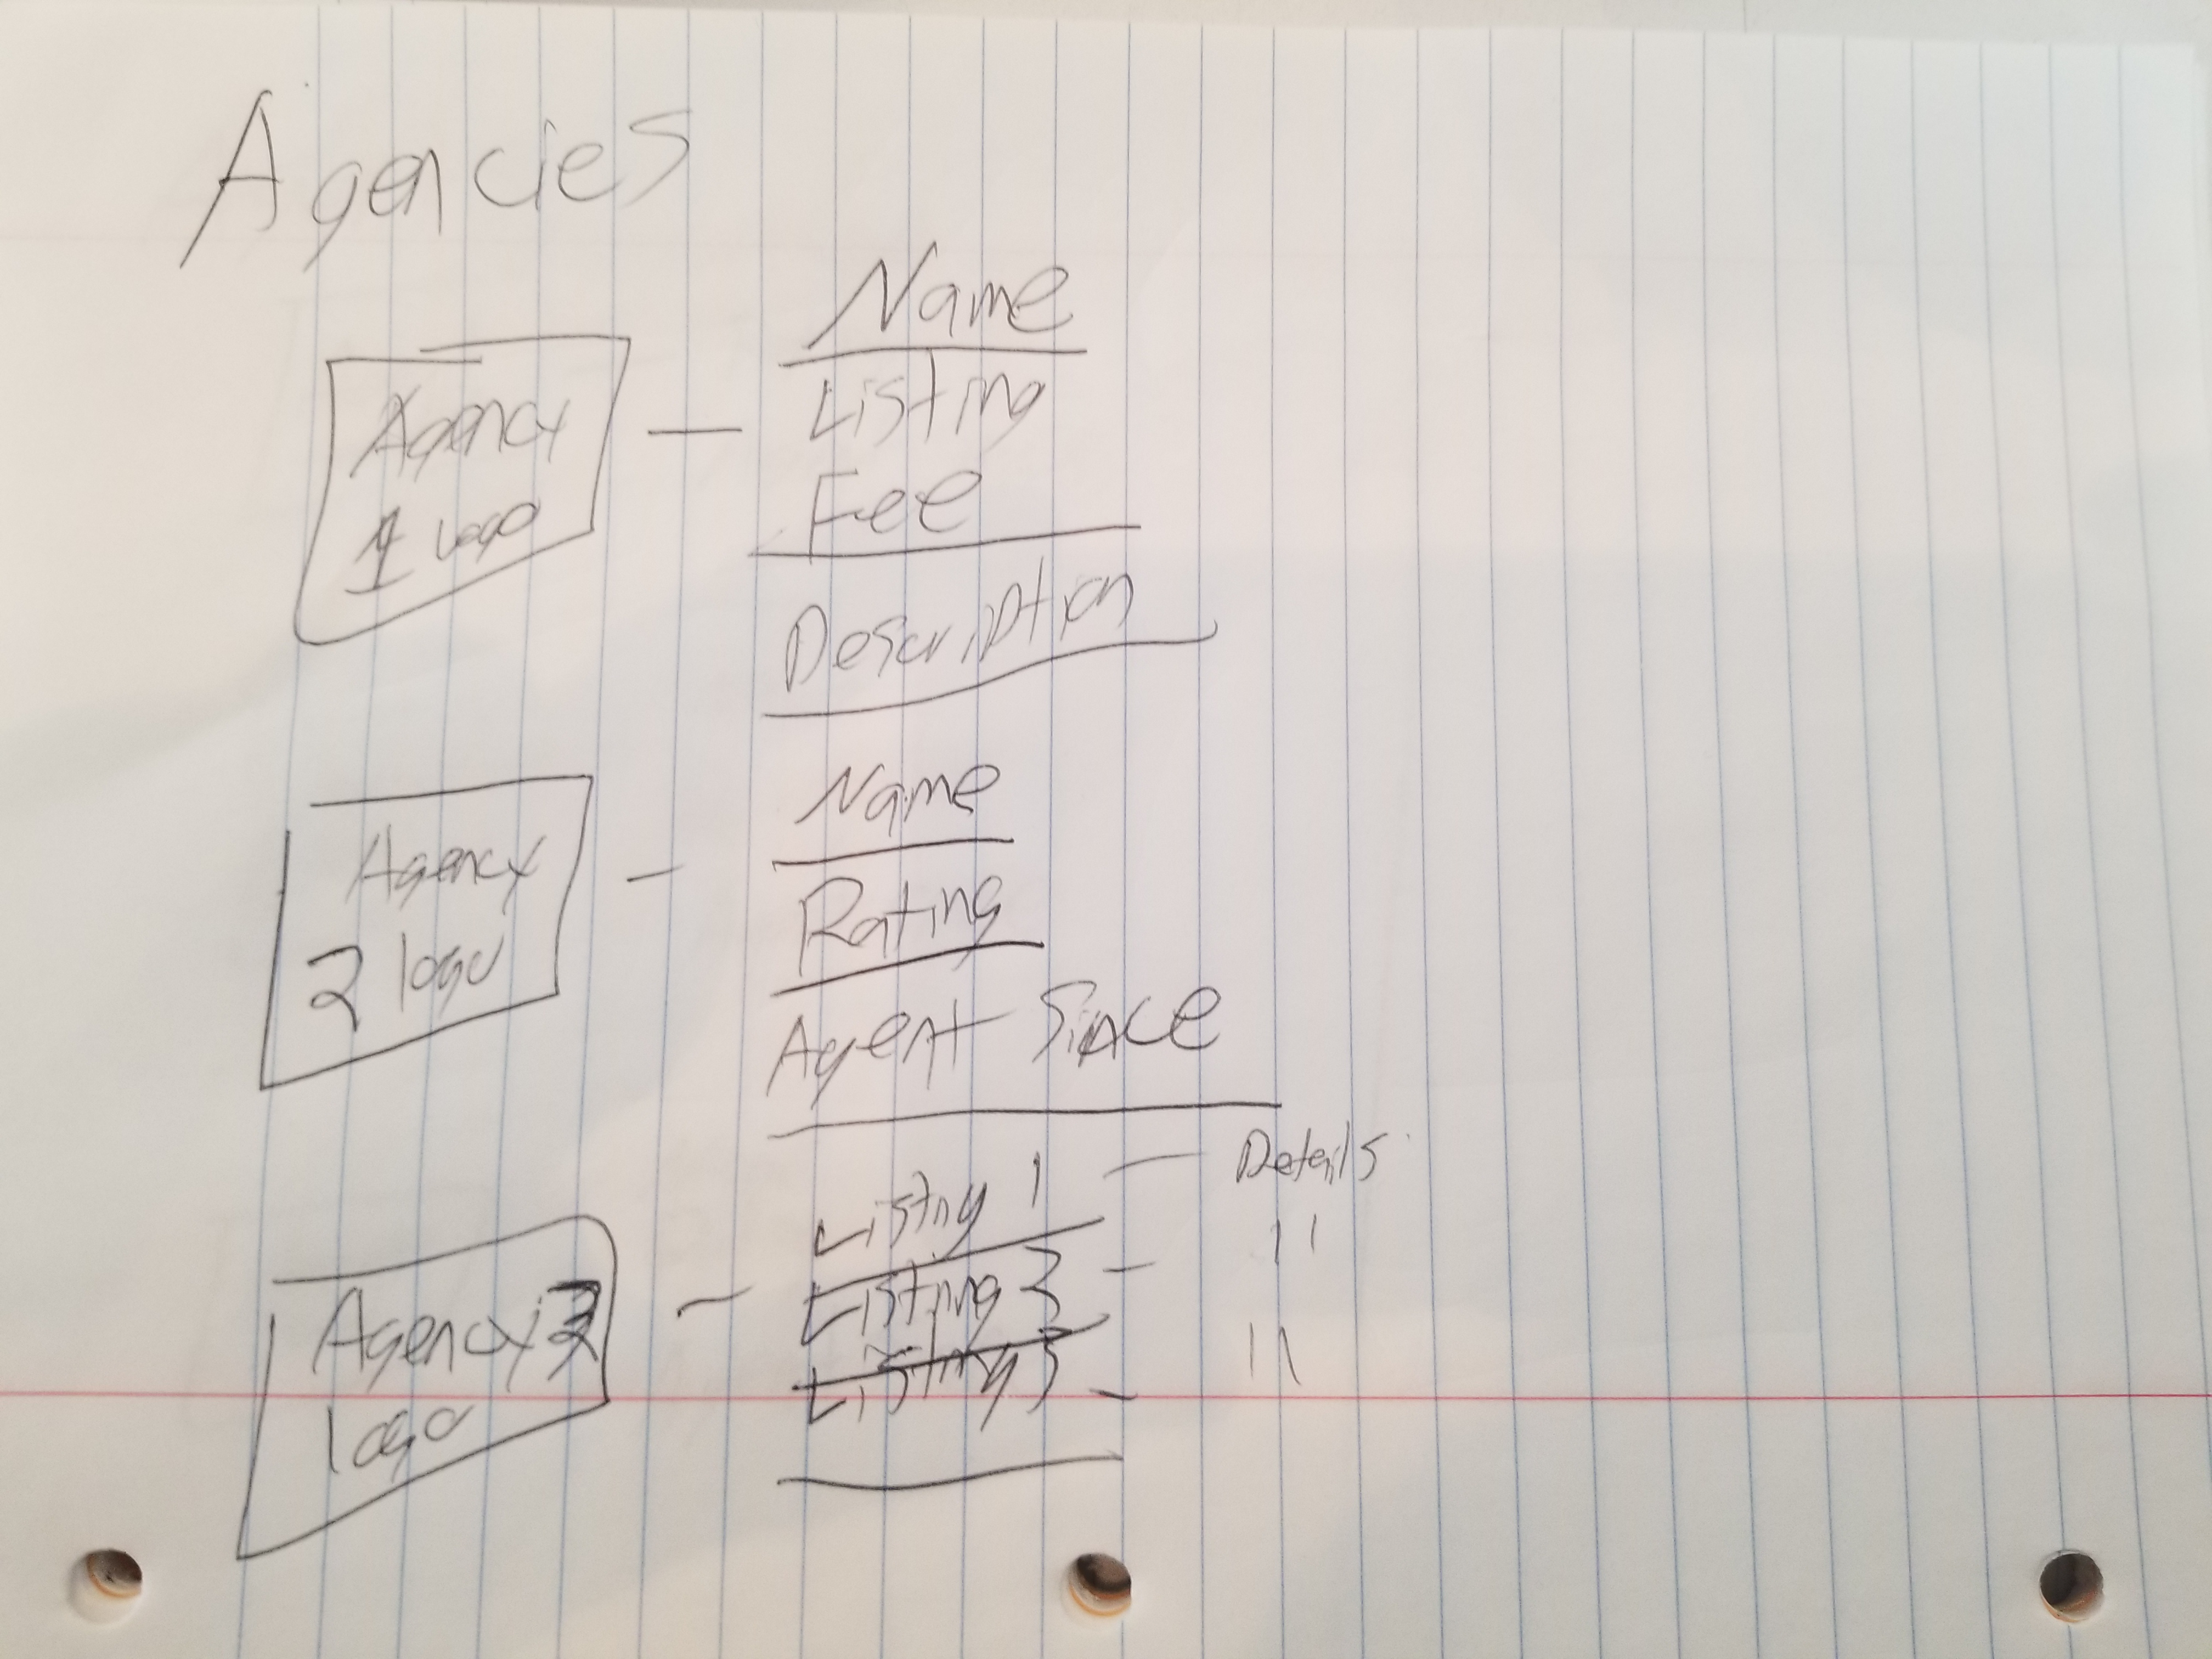 Agencies
Agency
1 Logo
Name
Listing
Fee
Description
Agency
2 logo
Name
Rating
Agent Since
Agency 3
logo
Listing 1 — Details
Listing 2 — 11
Listing 3 — 11